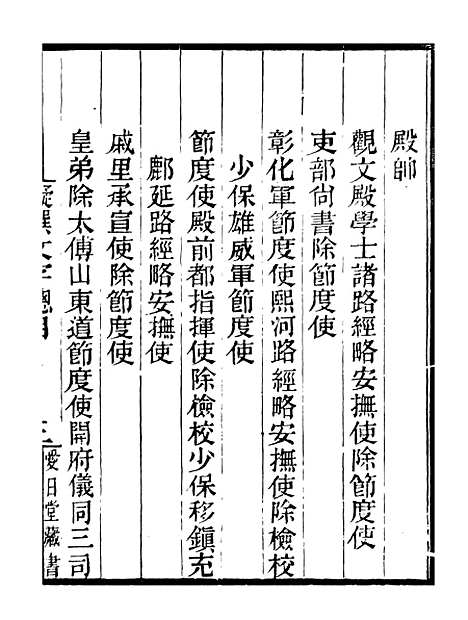 殿帥
觀文殿學士諸路經略安撫使除節度使
吏部尙書除節度使
彰化軍節度使熙河路經略安撫使除檢校
少保雄威軍節度使
節度使殿前都指揮使除檢校少保移鎮充
鄜延路經略安撫使
戚里承宣使除節度使
皇弟除太傅山東道節度使開府儀同三司
擬撰文字總目
三
愛日堂藏書